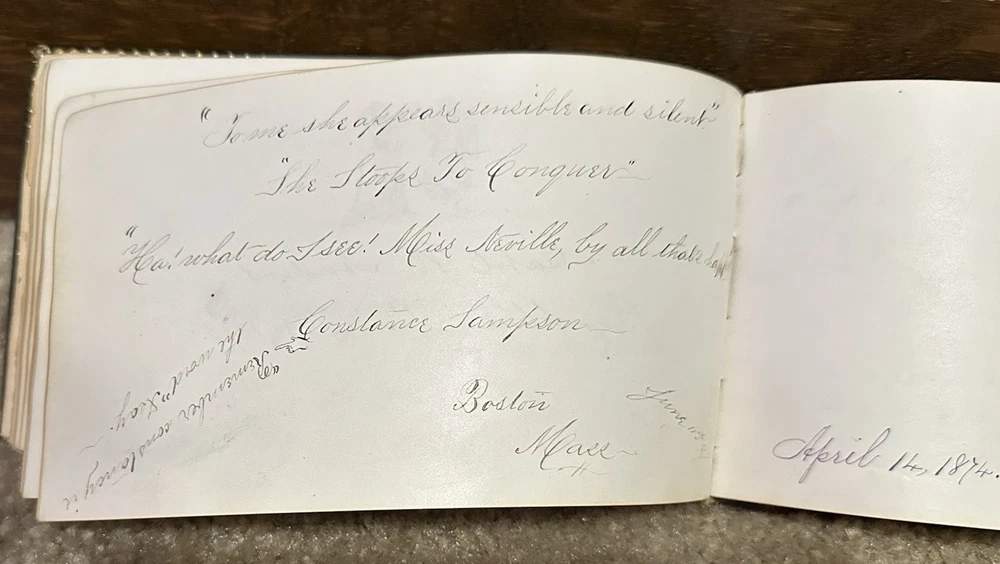 "To me she appears sensible and silent"
"She Stoops To Conquer"
"Ha! what do I see! Miss Neville, by all that's
Constance Sampson
Remember constancy is
the word "Izay.
Boston
Mass
June
April 14, 1874.